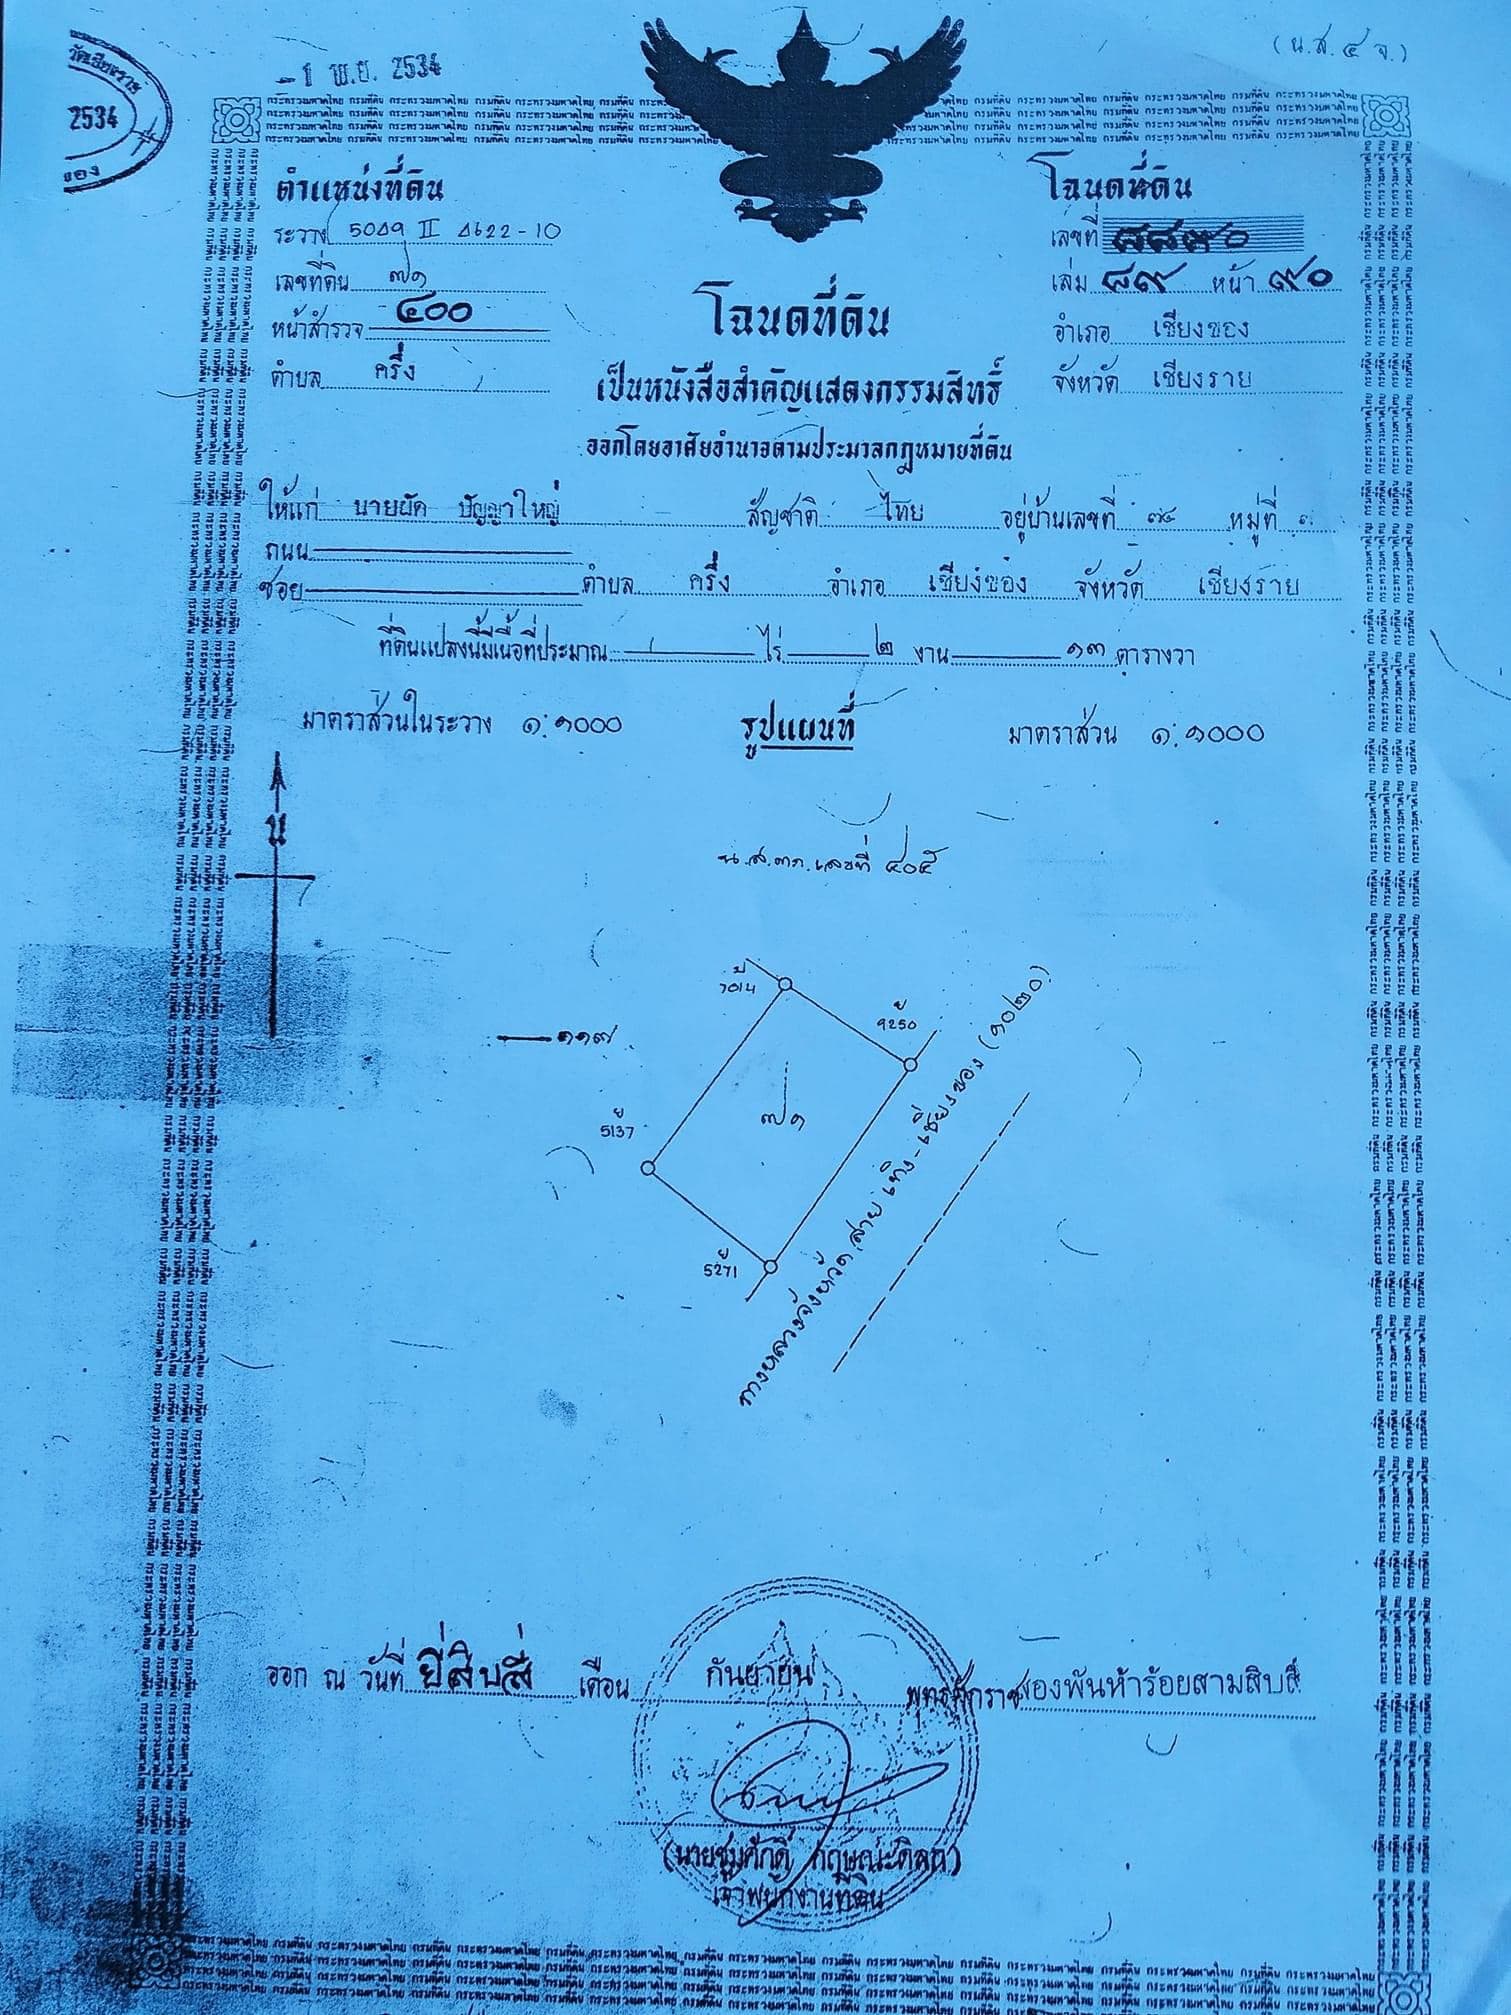 (น.ส. ๔ จ.)
-1 พ.ย. 2534
2534
ตำแหน่งที่ดิน
ระวาง 5049 II 4622-10
เลขที่ดิน ๗๑
หน้าสำรวจ ๔๐๐
ตำบล ครึ่ง
โฉนดที่ดิน
เลขที่ ๘๘๙๐
เล่ม ๘๙ หน้า ๙๐
อำเภอ เชียงของ
จังหวัด เชียงราย
โฉนดที่ดิน
เป็นหนังสือสำคัญแสดงกรรมสิทธิ์
ออกโดยอาศัยอำนาจตามประมวลกฎหมายที่ดิน
ให้แก่ นายผัด ปัญญาใหญ่ สัญชาติ ไทย อยู่บ้านเลขที่ ๗๕ หมู่ที่
ถนน
ซอย ตำบล ครึ่ง อำเภอ เชียงของ จังหวัด เชียงราย
ที่ดินแปลงนี้มีเนื้อที่ประมาณ ไร่ ๒ งาน ๑๓ ตารางวา
มาตราส่วนในระวาง ๑:๑๐๐๐ รูปแผนที่ มาตราส่วน ๑:๑๐๐๐
น
น.ส.๓ก.เลขที่ ๔๐๕
ข
7014
ข
9250
๑๑๗
ข
5137
๗๑
ข
5271
ทางหลวงจังหวัด สาย เทิง-เชียงของ (๑๐๒๐)
ออก ณ วันที่ ยี่สิบสี่ เดือน กันยายน พุทธศักราช สองพันห้าร้อยสามสิบสี่
(นายชูมศักดิ์ กฤษณะดิลก)
เจ้าพนักงานที่ดิน
กระทรวงมหาดไทย กรมที่ดิน